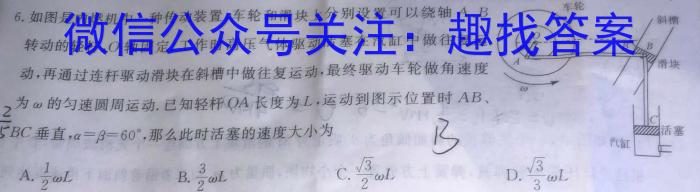 车轮
6. 如图是 机中 种传动装置,车轮和滑块上分别设置可以绕轴A、B
斜槽
微信公众号关注：趣找答案
转动的轻
B
滑块
A
动,再通过连杆驱动滑块在斜槽中做往复运动,最终驱动车轮做角速度
ω
为ω的匀速圆周运动.已知轻杆OA长度为L,运动到图示位置时AB、
C
BC垂直,α=β=60°,那么此时活塞的速度大小为
B
活塞
汽缸
A. $\frac{1}{2}$ωL B. $\frac{3}{2}$ωL C. $\frac{\sqrt{3}}{2}$ωL D. $\frac{\sqrt{3}}{3}$ωL